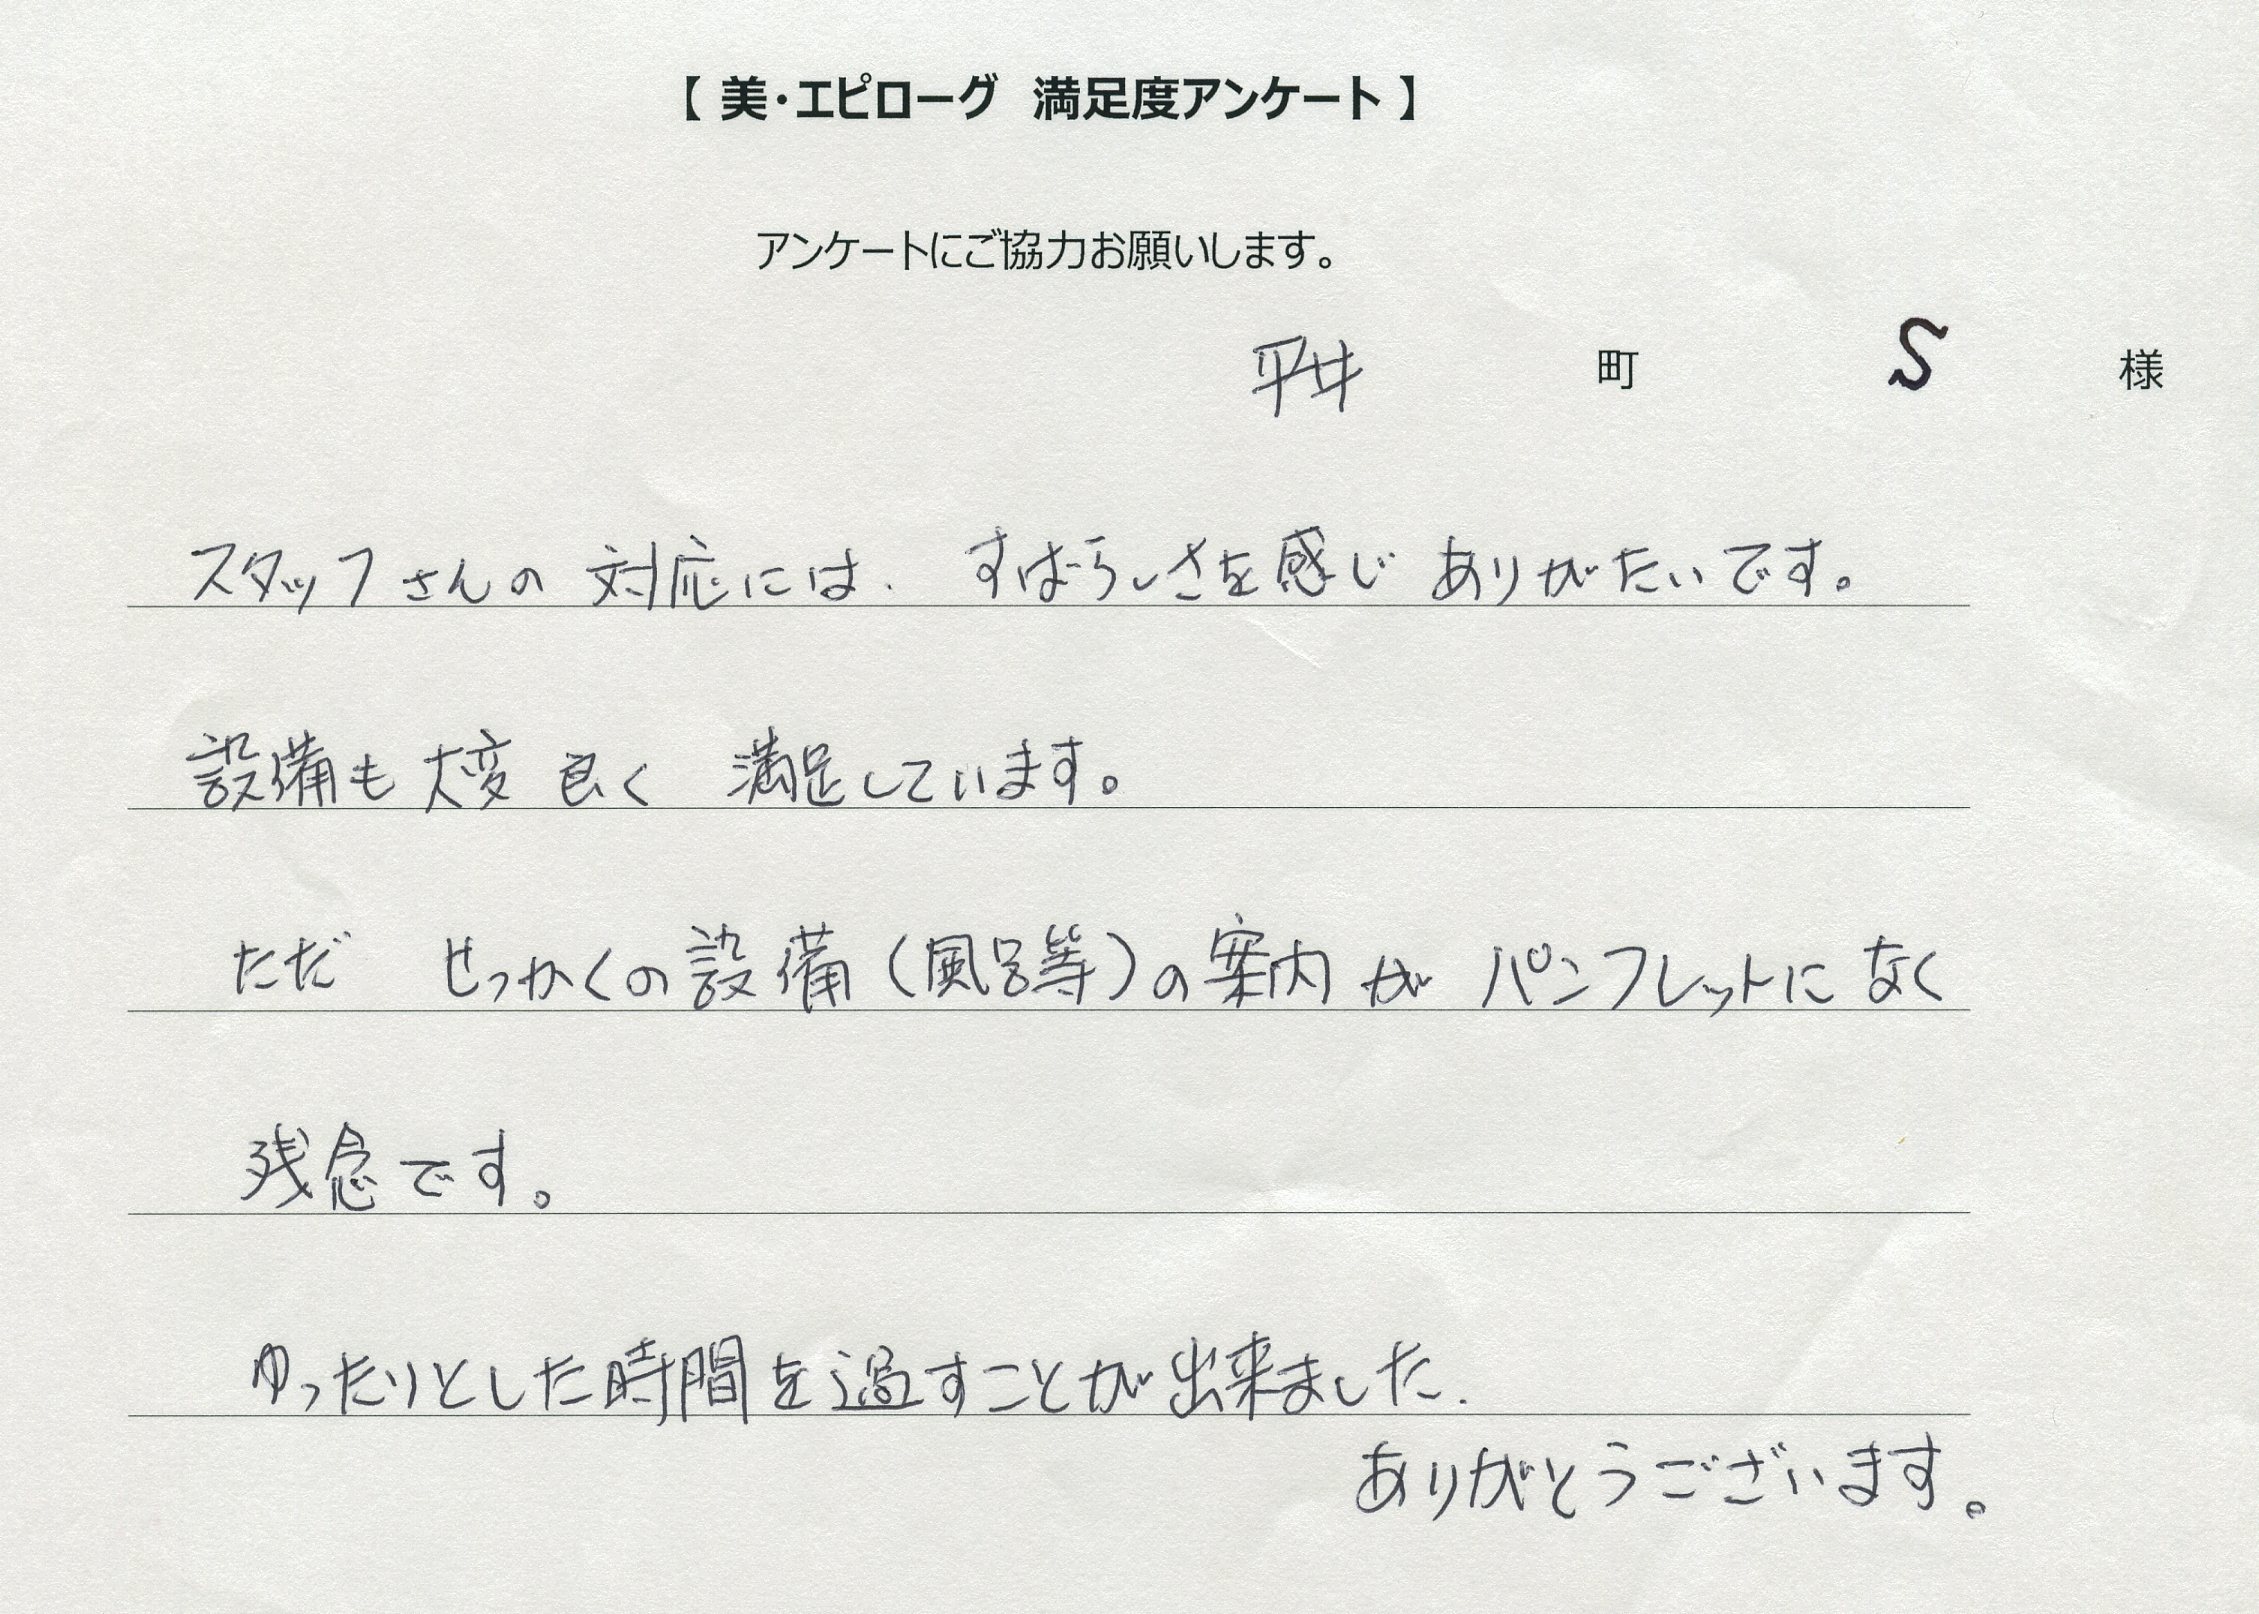 【 美・エピローグ 満足度アンケート 】
アンケートにご協力お願いします。
平井 町 S 様
スタッフさんの 対応には. すばらしさを感じ ありがたいです。
設備も 大変 良く 満足しています。
ただ せっかくの設備(風呂等)の案内が パンフレットに なく
残念です。
ゆったりとした時間を過すことが出来ました.
ありがとうございます。